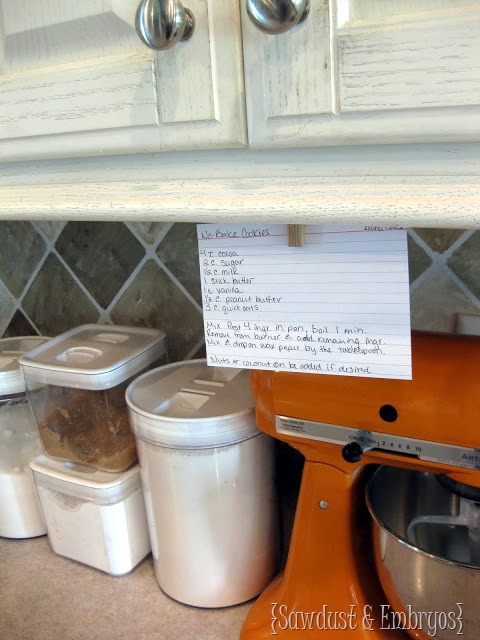 No-Bake Cookies
4 T. cocoa
2 C. sugar
1/2 C. milk
1 stick butter
1 t. vanilla
1/2 C. peanut butter
3 C. quick oats
Mix first 4 ingr. in pan, boil 1 min.
Remove from burner & add remaining ingr.
Mix & drop on wax paper by the tablespoon.
Nuts or coconut can be added if desired.
2 4 6 8 10
ART
{Sawdust & Embryos}